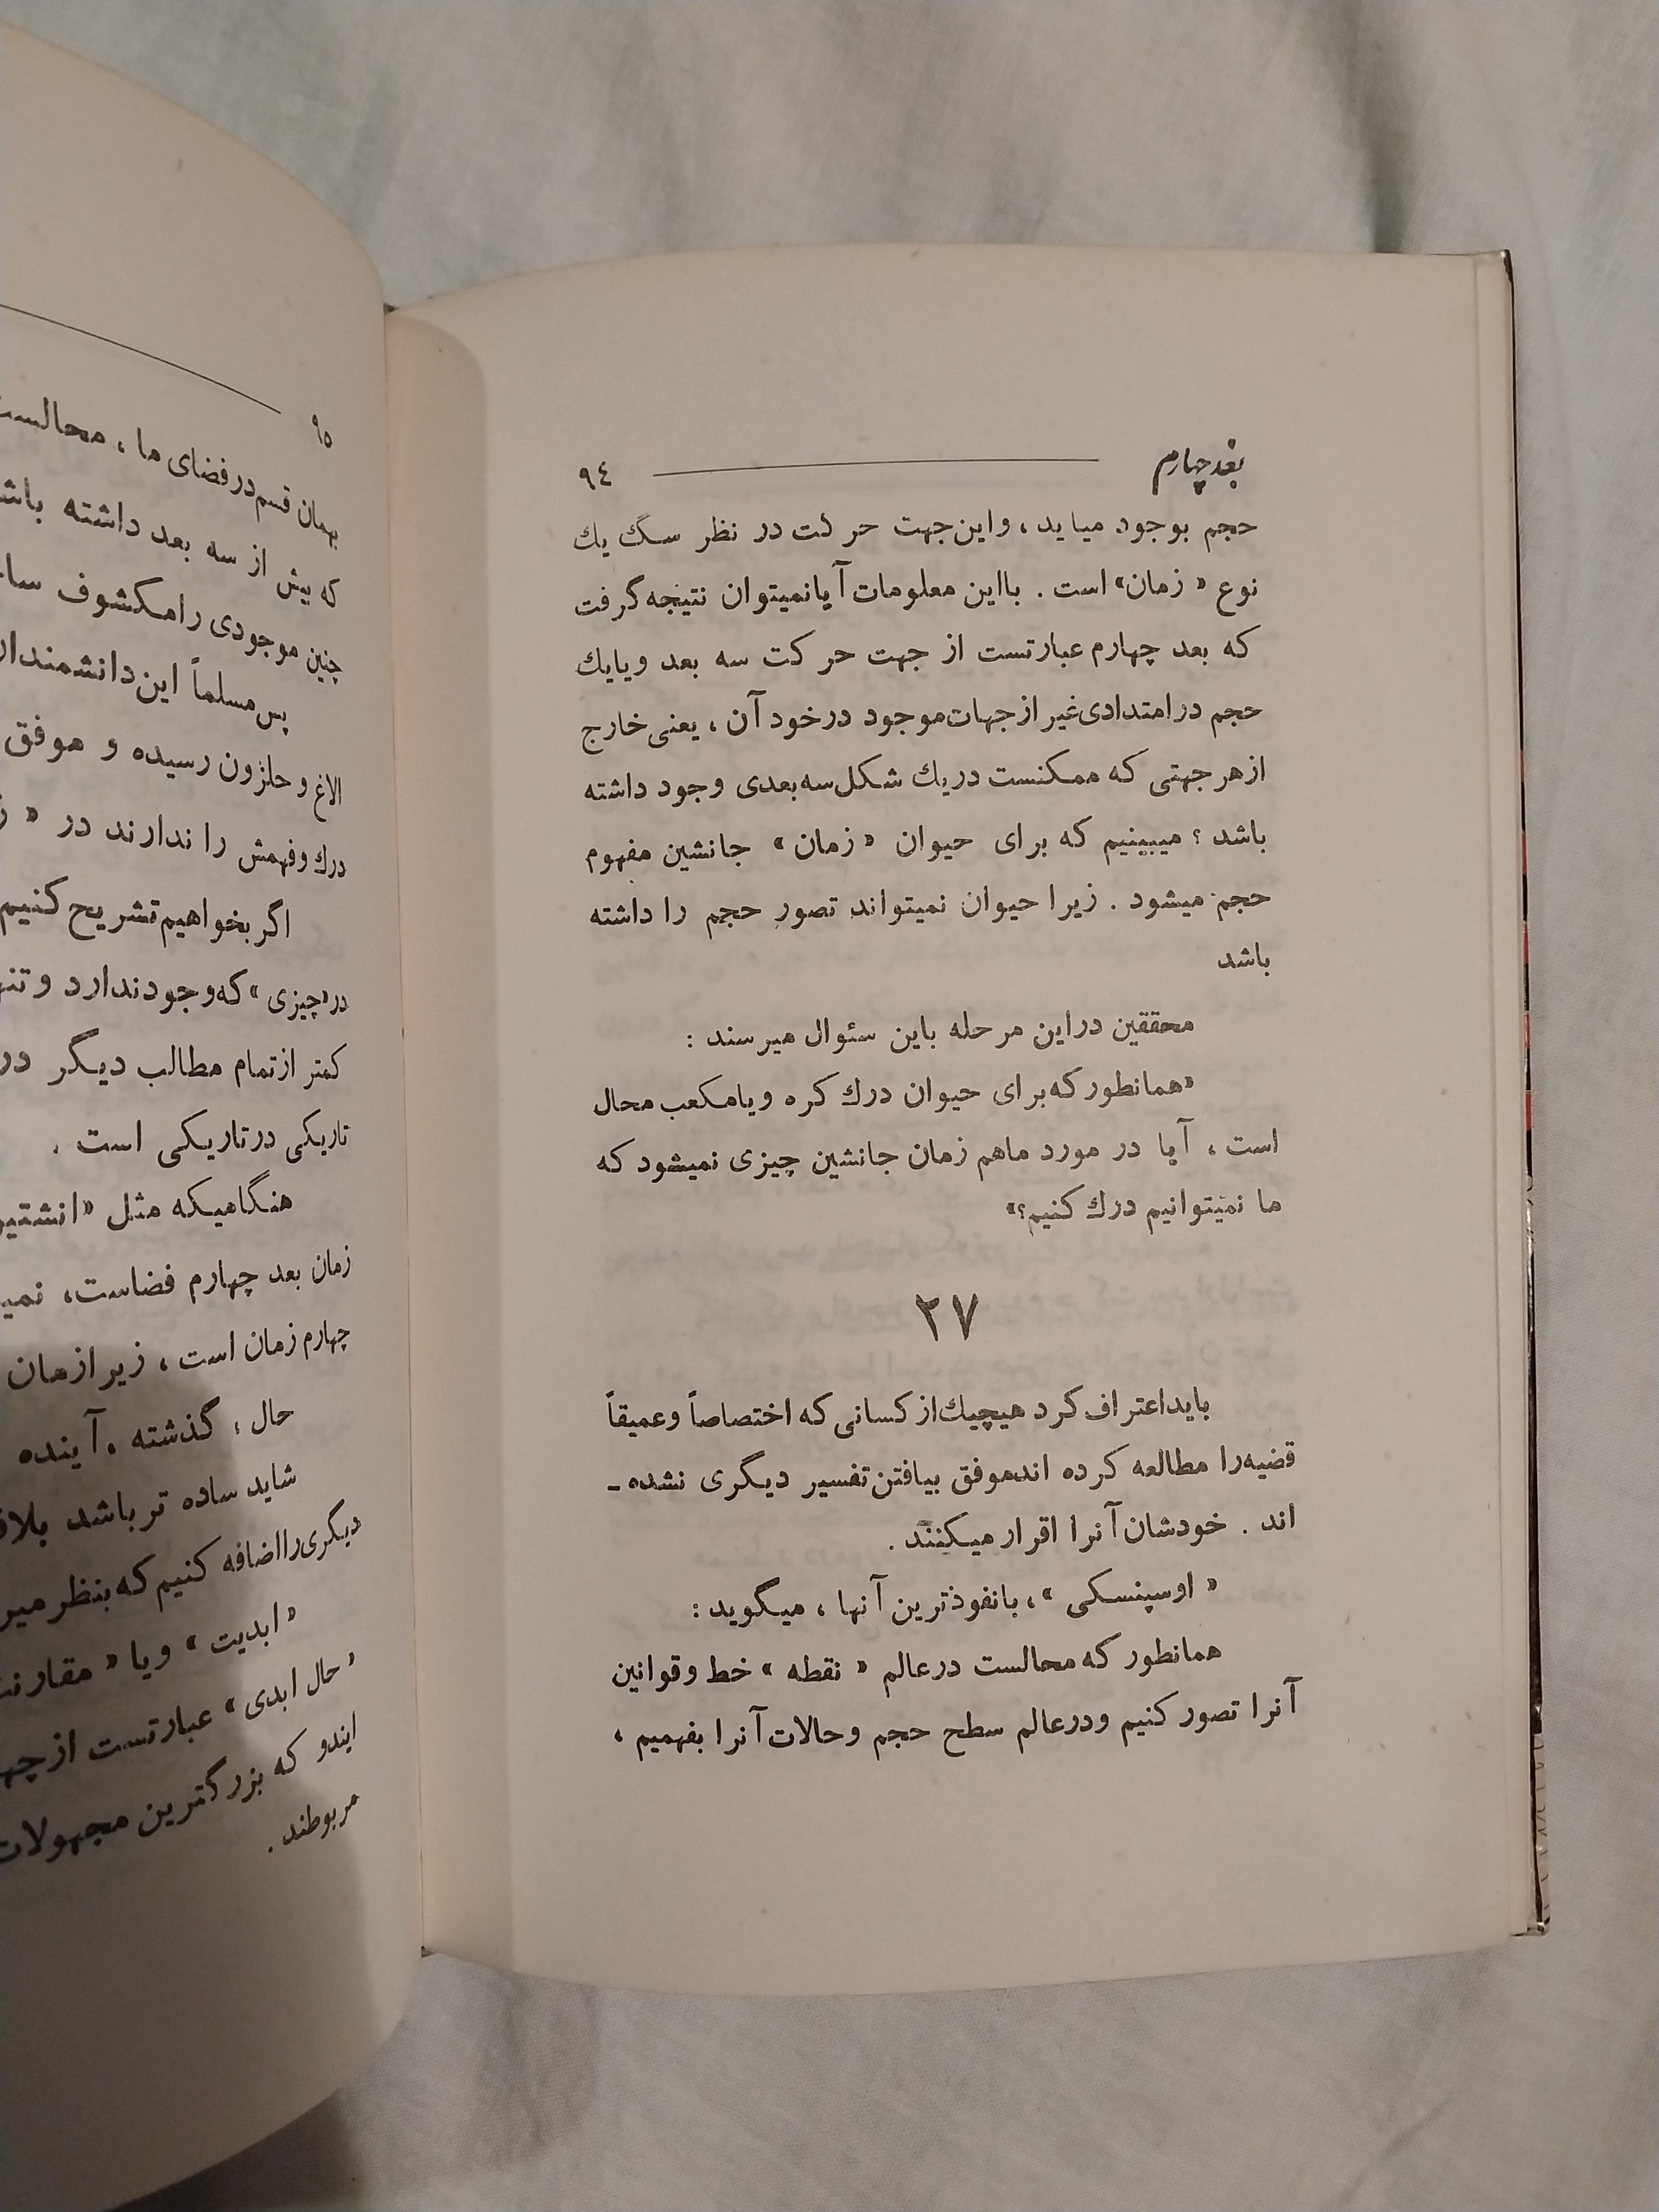 بعد چهارم ۹٤
حجم بوجود میاید ، واین جهت حرکت در نظر سگ یك
نوع « زمان» است . بااین معلومات آیانمیتوان نتیجه گرفت
که بعد چهارم عبارتست از جهت حرکت سه بعد ویایك
حجم درامتدادی غیر ازجهات موجود درخود آن ، یعنی خارج
ازهر جهتی که ممکنست دریك شکل سه بعدی وجود داشته
باشد ؟ میبینیم که برای حیوان « زمان» جانشین مفهوم
حجم میشود . زیرا حیوان نمیتواند تصور حجم را داشته
باشد
محققین دراین مرحله باین سئوال میرسند :
«همانطور که برای حیوان درك کره ویامکعب محال
است ، آیا در مورد ماهم زمان جانشین چیزی نمیشود که
ما نمیتوانیم درك کنیم؟»
۲۷
بایداعتراف کرد هیچیك از کسانی که اختصاصاً وعمیقاً
قضیه را مطالعه کرده اندموفق بیافتن تفسیر دیگری نشده ـ
اند . خودشان آنرا اقرار میکنند .
« اوسپنسکی » ، بانفوذترین آنها ، میگوید :
همانطور که محالست درعالم « نقطه » خط وقوانین
آنرا تصور کنیم ودرعالم سطح حجم وحالات آنرا بفهمیم ،
۹٥
بهمان قسم درفضای ما ، محالست
که بیش از سه بعد داشته
چنین موجودی رامکشوف
پس مسلماً این
الاغ و حلزون رسیده و موفق
درك وفهمش را ندارند در «
اگر بخواهیم تشریح کنیم
در «چیزی » که وجودندارد
کمتر ازتمام مطالب دیگر
تاریکی درتاریکی است .
هنگامیکه مثل
زمان بعد چهارم فضاست ،
چهارم زمان است ، زیر ازمان
حال ، گذشته ، آینده
شاید ساده تر باشد
دیگری رااضافه کنیم که بنظر
« ابدیت » ویا «
« حال ابدی » عبارتست از
ایندو که بزرگترین مجهولات
مربوطند .